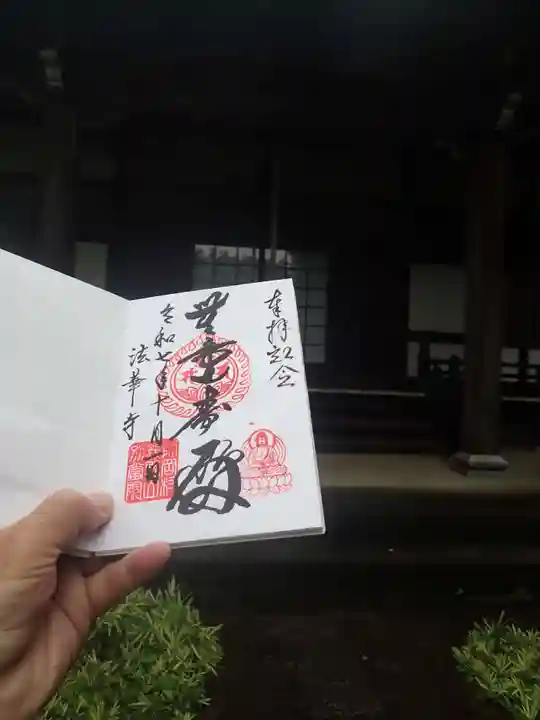 奉拝記念
無量寿殿
令和七年十月一日
法華寺